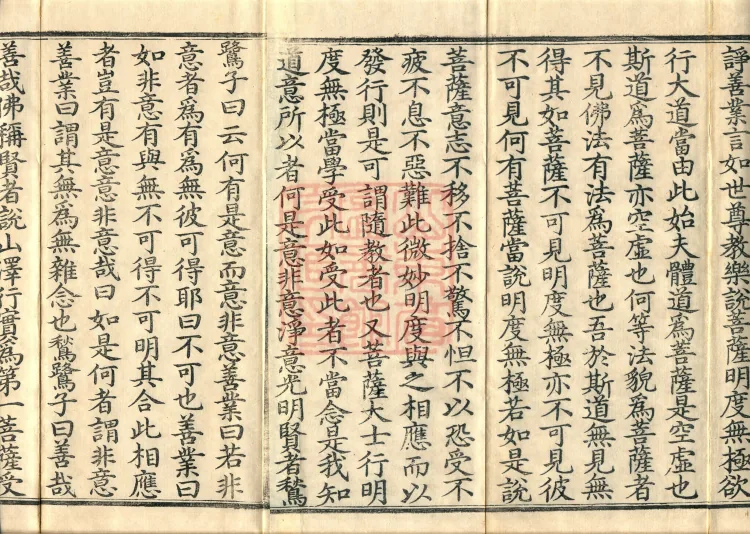 諍善業言如世尊教樂說菩薩明度無極欲
行大道當由此始夫體道為菩薩是空虛也
斯道為菩薩亦空虛也何等法貌為菩薩者
不見佛法有法為菩薩也吾於斯道無見無
得其如菩薩不可見明度無極亦不可見彼
不可見何有菩薩當說明度無極若如是說
菩薩意志不移不捨不驚不怛不以恐受不
疲不息不惡難此微妙明度與之相應而以
發行則是可謂隨教者也又菩薩大士行明
度無極當學受此如受此者不當念是我知
道意所以者何是意非意淨意光明賢者鶖
鷺子曰云何有是意而意非意善業曰若非
意者為有為無彼可得耶曰不可也善業曰
如非意有與無不可得不可明其合此相應
者豈有是意意非意哉曰如是何者謂非意
善業曰謂其無為無雜念也鶖鷺子曰善哉
善哉佛稱賢者說山澤行實為第一菩薩受